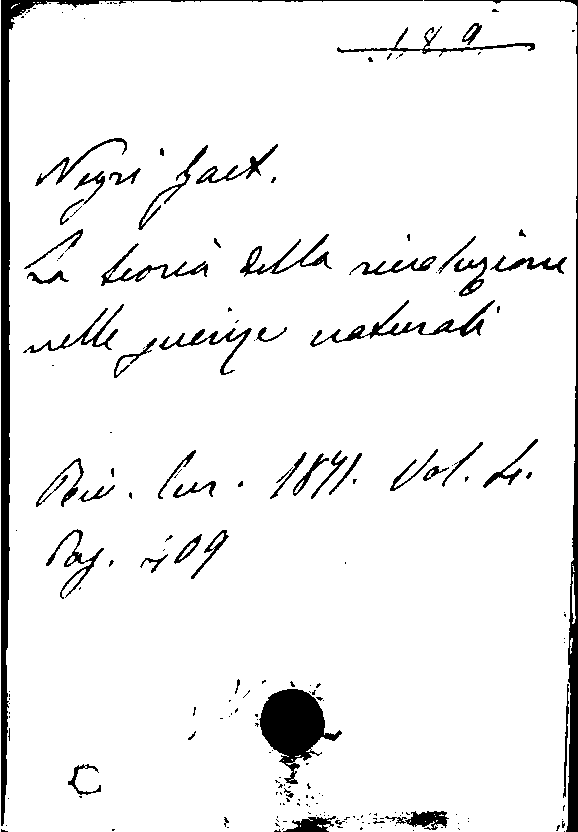 189
Negri Gaet.
La teoria della rivoluzione
nelle scienze naturali
Riv. Eur. 1871. Vol. 4.
Pag. 409
C